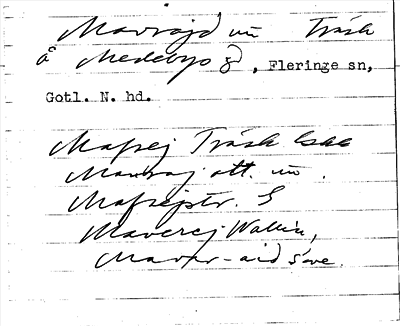 Mavrajd un Träsk
å Medebys g, Fleringe sn,
Gotl. N. hd.
Mafrej Träsk
Mavraj att. un.
Mafrejstr. S
Maverej Wallin,
Mavur-aid Säve.